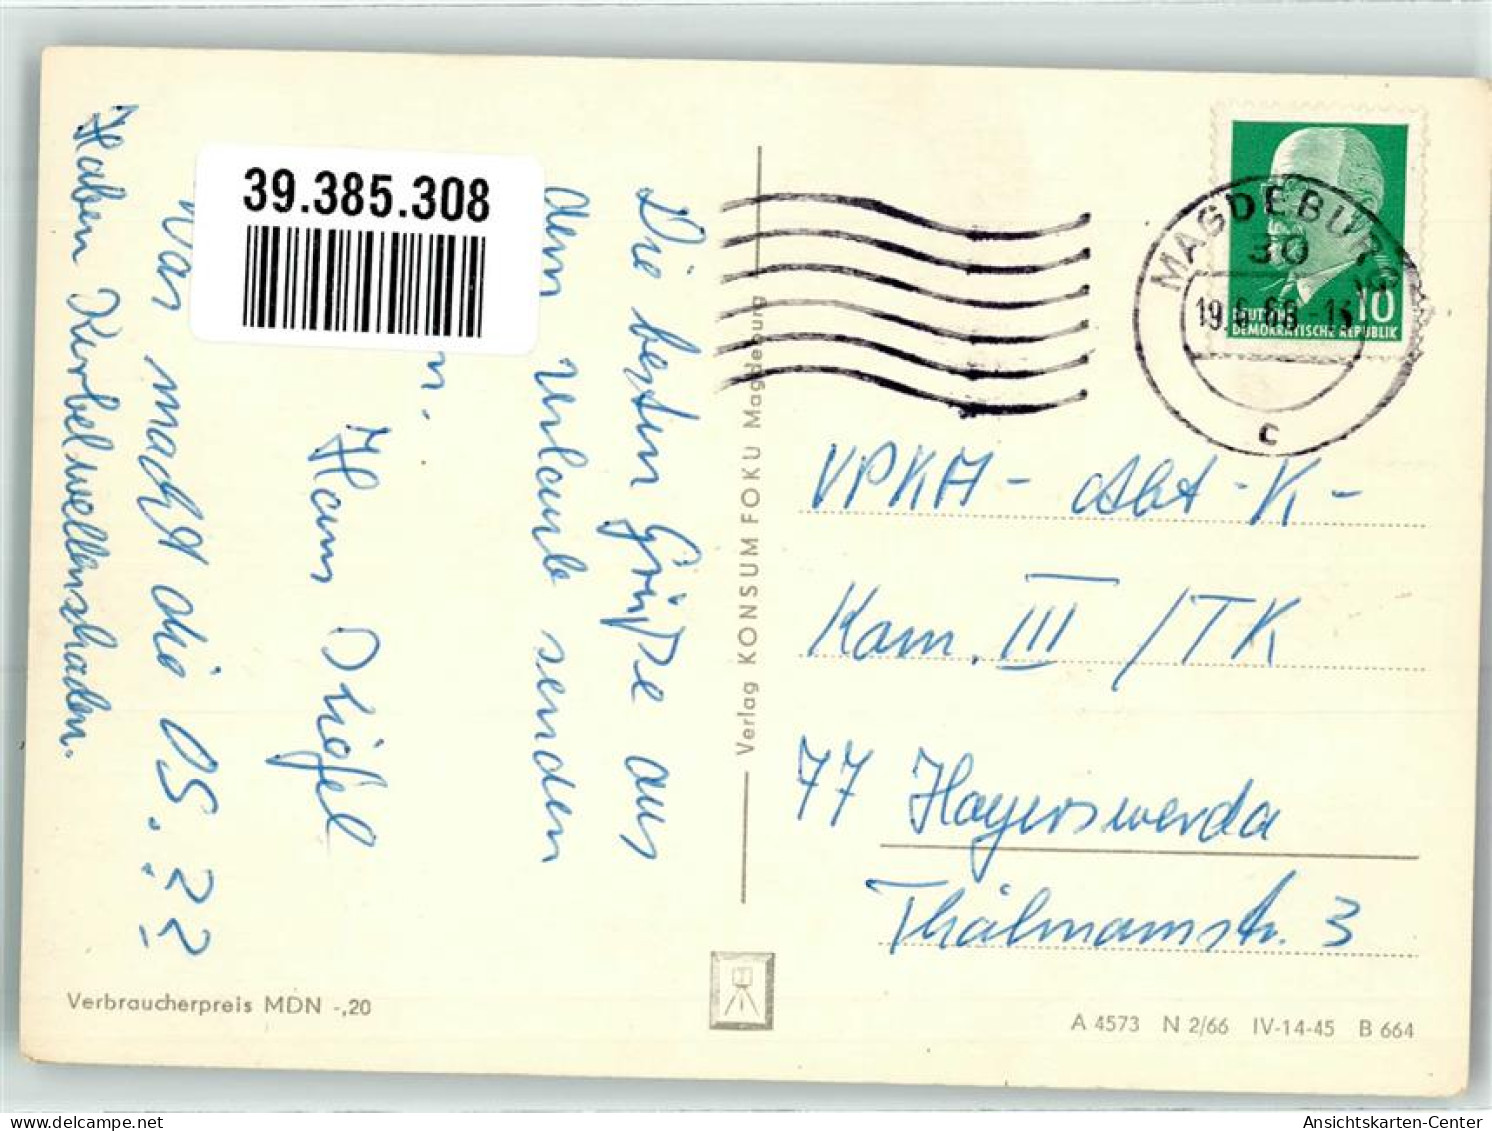 39.385.308
Die besten Grüße aus
dem Urlaub senden
Hans
Was macht die DS. ??
Haben Kurbelwellenschaden.
Verbraucherpreis MDN -,20
Verlag KONSUM FOKU Magdeburg
MAGDEBURG
30
19.6.66-13
c
10
DEUTSCHE
DEMOKRATISCHE REPUBLIK
VPKA - Abt - K -
Kom. III / TK
77 Hoyerswerda
Thälmannstr. 3
A 4573 N 2/66 IV-14-45 B 664
Ansichtskarten-Center